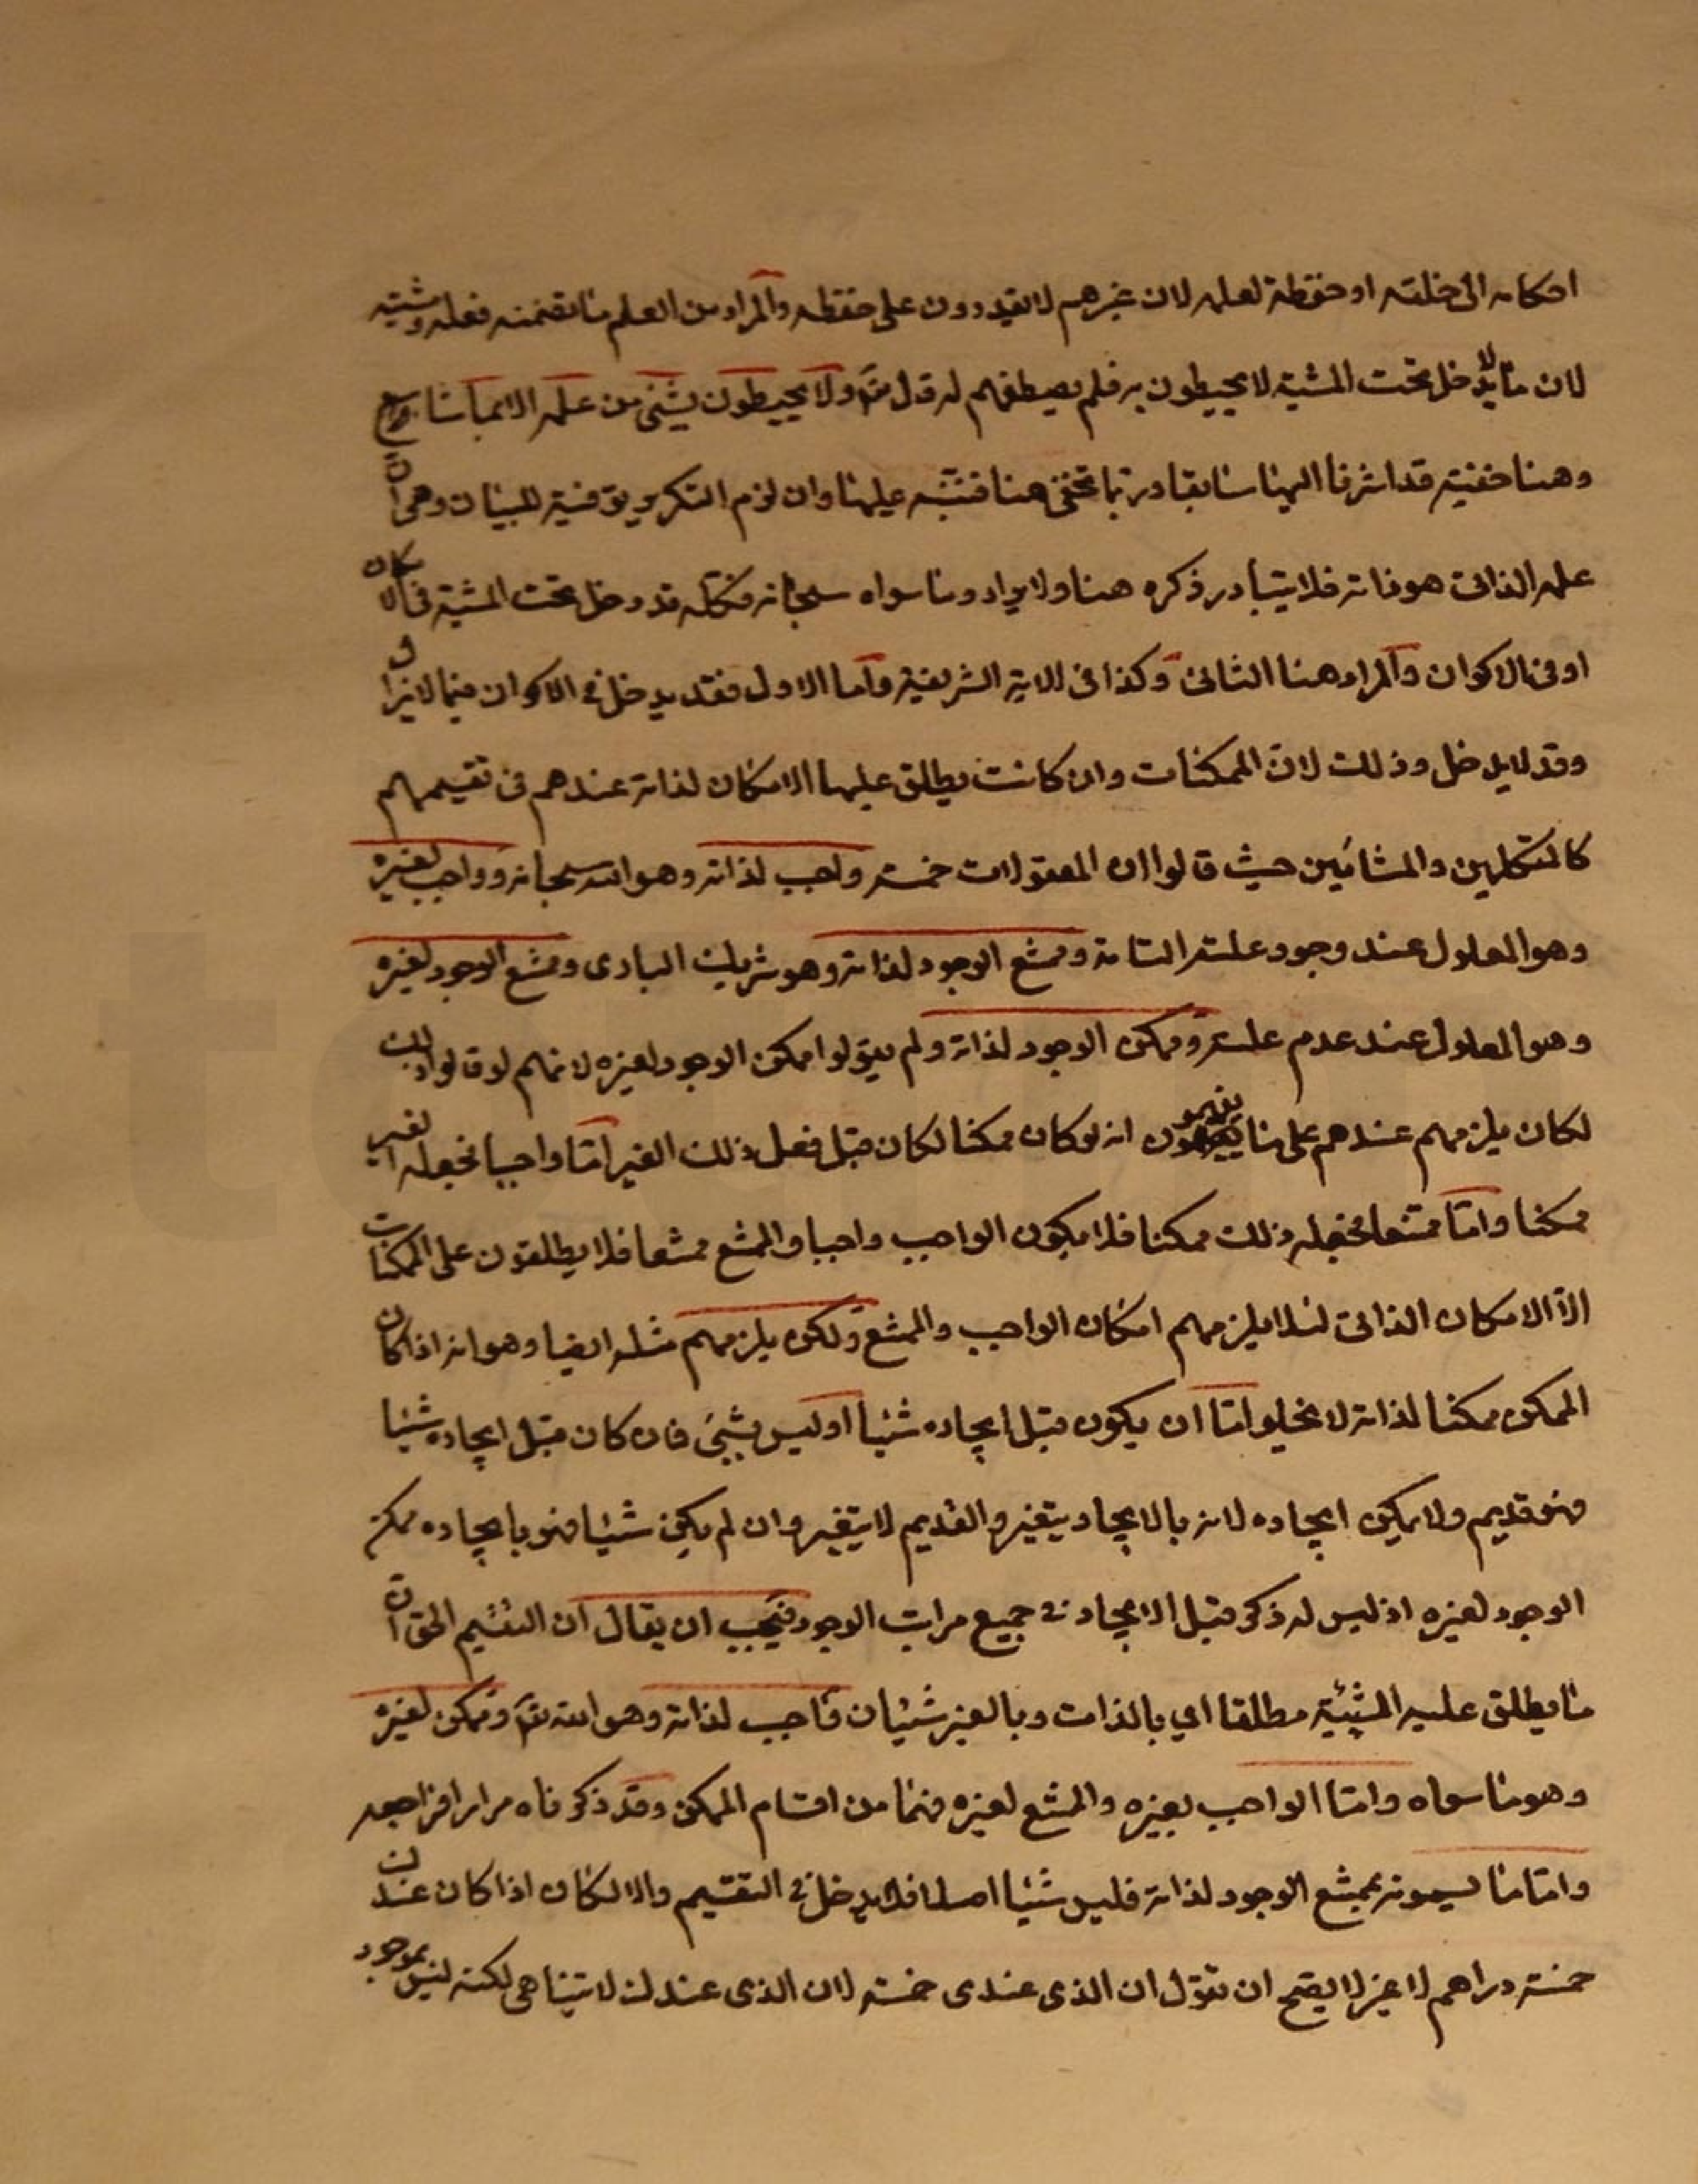 احكامه الى خلقه او حفظة لعلمه لان غيرهم لا يقدرون على حفظه والمراد من العلم ما تضمنه فعله ومشيته
لان ما لا يدخل تحت المشية لا يحيطون به فلم يصطفهم له قال تع ولا يحيطون بشئ من علمه الا بما شاء
وهنا خفية قد اشرنا اليها سابقا وربما تخفى هنا فننبه عليها وان لزم التكرير توفية للبيان وهى ان
علمه الذاتى هو ذاته فلا يتبادر ذكره هنا ولا يراد وما سواه سبحانه فكله قد دخل تحت المشية فى الامكان
او فى الاكوان والمراد هنا الثانى وكذا فى الاية الشريفة واما الاول فقد يدخل فى الاكوان فيما لا يزال
وقد لا يدخل وذلك لان الممكنات وان كانت يطلق عليها الامكان لذاته عندهم فى تقسيمهم
كالمتكلمين والمشائين حيث قالوا ان المعقولات خمسة واجب لذاته وهو الله سبحانه وواجب لغيره
وهو المعلول عند وجود علته التامة وممتنع الوجود لذاته وهو شريك البارى وممتنع الوجود لغيره
وهو المعلول عند عدم علته وممكن الوجود لذاته ولم يقولوا ممكن الوجود لغيره لانهم لو قالوا ذلك
لكان يلزمهم عندهم على ما يفهمون انه لو كان ممكنا لكان قبل فعل ذلك الغير اما واجبا فجعله الغير
ممكنا واما ممتنعا فجعله ذلك ممكنا فلا يكون الواجب واجبا والممتنع ممتنعا فلا يطلقون على الممكنات
الا الامكان الذاتى لئلا يلزمهم امكان الواجب والممتنع ولكن يلزمهم مثله ايضا وهو انه اذا كان
الممكن ممكنا لذاته لا يخلو اما ان يكون قبل ايجاده شيئا او ليس بشئ فان كان قبل ايجاده شيئا
فهو قديم ولا يمكن ايجاده لانه بالايجاد يتغير والقديم لا يتغير وان لم يكن شيئا فهو بايجاده ممكن
الوجود لغيره اذ ليس له ذكر قبل الايجاد فى جميع مراتب الوجود فيجب ان يقال ان التقسيم الحق ان
ما يطلق عليه الشيئية مطلقا اى بالذات وبالغير شيئان واجب لذاته وهو الله تع وممكن لغيره
وهو ما سواه واما الواجب بغيره والممتنع لغيره فهما من اقسام الممكن وقد ذكرناه مرارا فراجعه
واما ما يسمونه بممتنع الوجود لذاته فليس شيئا اصلا فلا يدخل فى التقسيم والا لكان اذا كان عندك
خمسة دراهم لا غير لا يصح ان تقول ان الذى عندى خمسة لان الذى عندك لا يتناهى لكنه ليس بموجود